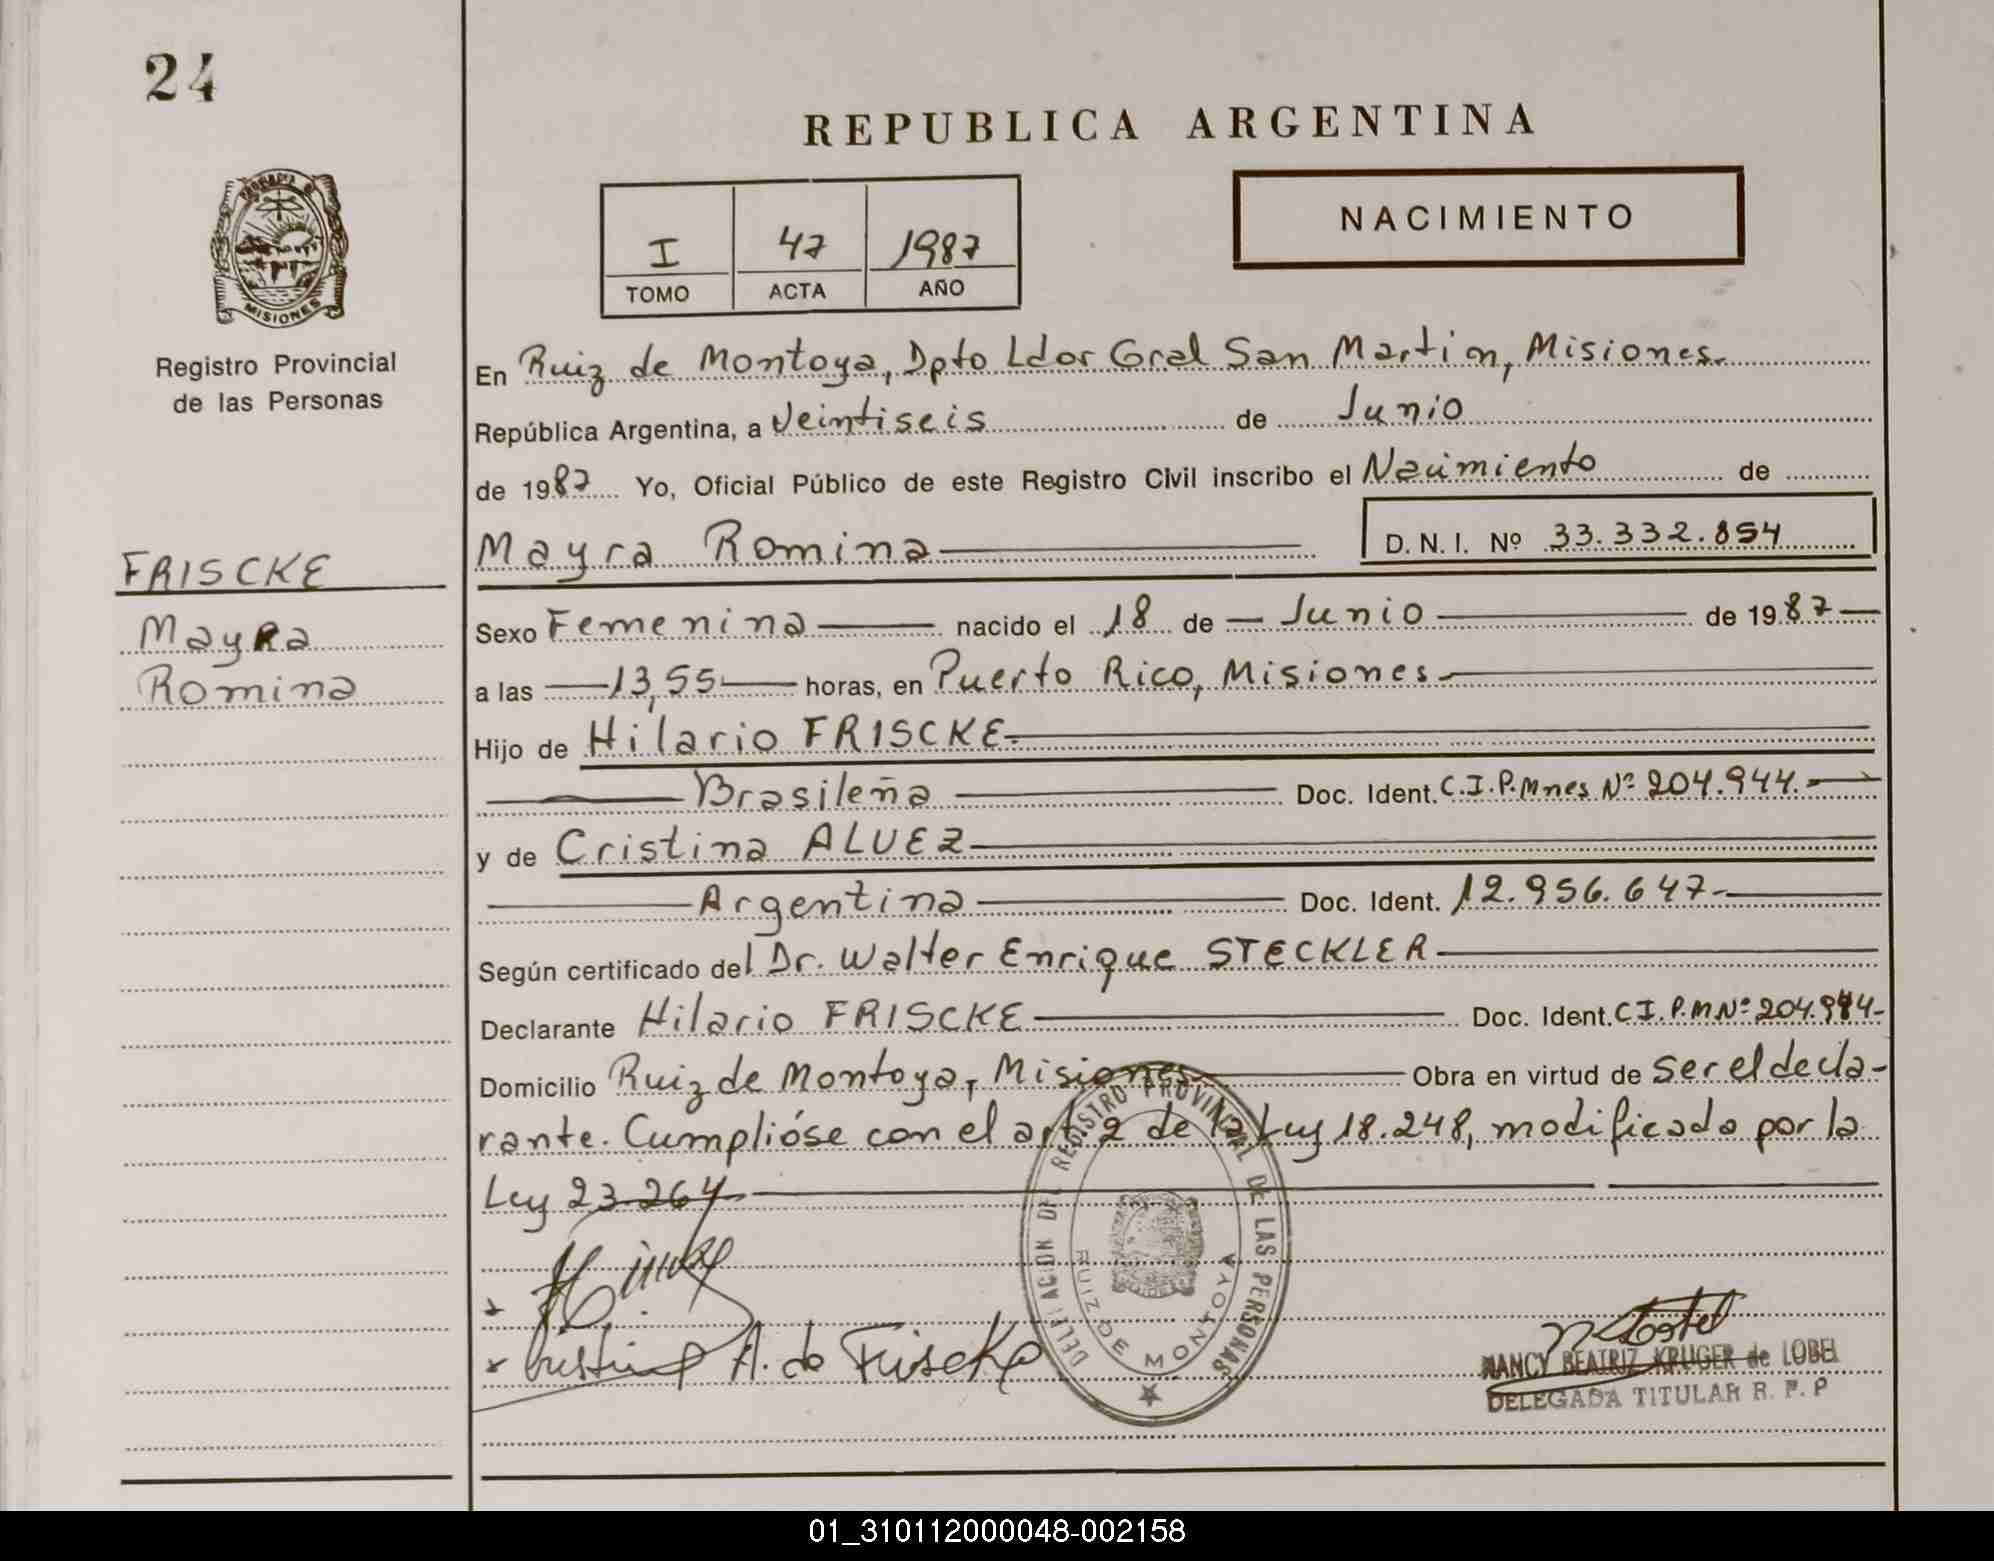 24
REPUBLICA ARGENTINA
PROVINCIA DE
MISIONES
Registro Provincial
de las Personas
I 47 1987
TOMO ACTA AÑO
NACIMIENTO
FRISCKE
Mayra
Romina
En Ruiz de Montoya, Dpto Ldor Gral San Martin, Misiones.
República Argentina, a Veintiseis de Junio
de 1987 Yo, Oficial Público de este Registro Civil inscribo el Nacimiento de
Mayra Romina D. N. I. Nº 33.332.854
Sexo Femenina nacido el 18 de Junio de 1987
a las 13,55 horas, en Puerto Rico, Misiones
Hijo de Hilario FRISCKE
Brasileña Doc. Ident. C.I.P.Mnes Nº 204.944.
y de Cristina ALVEZ
Argentina Doc. Ident. 12.956.647
Según certificado del Dr. Walter Enrique STECKLER
Declarante Hilario FRISCKE Doc. Ident. C.I.P.M Nº 204.944
Domicilio Ruiz de Montoya, Misiones Obra en virtud de ser el decla-
rante. Cumplióse con el art 2 de la Ley 18.248, modificado por la
Ley 23.264
DELEGACION DEL REGISTRO PROVINCIAL DE LAS PERSONAS
RUIZ DE MONTOYA
Cristina A. de Friscke
NANCY BEATRIZ KRUGER de LOBEL
DELEGADA TITULAR R. P. P
01_310112000048-002158